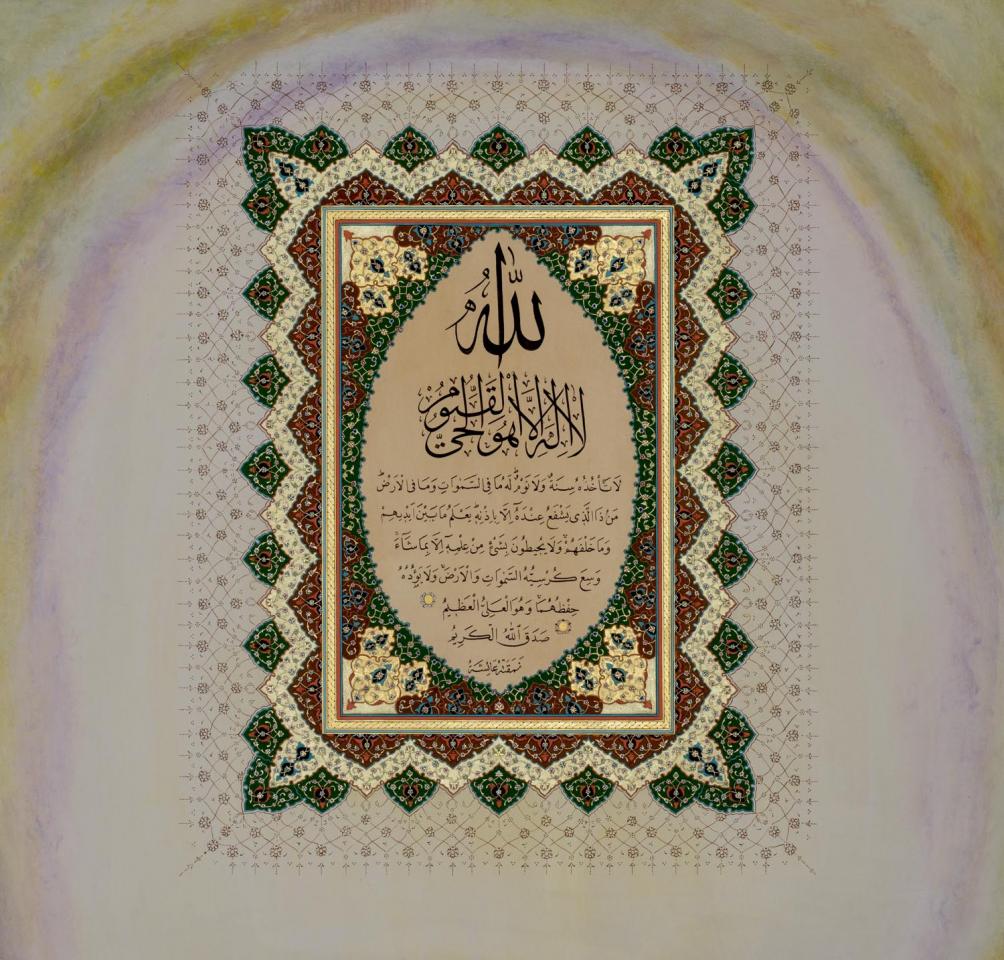 اللهُ
لَا إِلَهَ إِلَّا هُوَ الْحَيُّ الْقَيُّومُ
لَا تَأْخُذُهُ سِنَةٌ وَلَا نَوْمٌ لَهُ مَا فِي السَّمٰوَاتِ وَمَا فِي الْاَرْضِ
مَنْ ذَا الَّذِي يَشْفَعُ عِنْدَهُ اِلَّا بِاِذْنِهِ يَعْلَمُ مَا بَيْنَ اَيْدِيهِمْ
وَمَا خَلْفَهُمْ وَلَا يُحِيطُونَ بِشَيْءٍ مِنْ عِلْمِهِ اِلَّا بِمَا شَاءَ
وَسِعَ كُرْسِيُّهُ السَّمٰوَاتِ وَالْاَرْضَ وَلَا يَؤُدُهُ
حِفْظُهُمَا وَهُوَ الْعَلِيُّ الْعَظِيمُ
صَدَقَ اللهُ الْكَرِيمُ